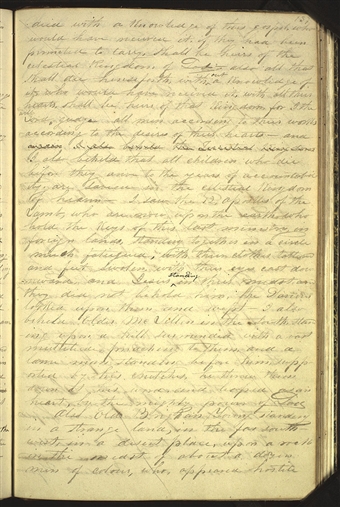 and with a knowledge of this gospel who
would have received it, if they had been
permitted to tarry, shall be heirs of the
celestial Kingdom of God — also all that
shall die henceforth, with out a knowledge of
it, who would have received it, with all their
hearts shall be heirs of that Kingdom for I the
Lord judge all men according to their works
according to the desires of their hearts — and
again I also beheld the Terrestrial Kingdom
I also beheld that all children who die
before they arrive to the years of accountabil
ity, are saved in the celestial Kingdom
of heaven — I saw the 12 apostles of the
Lamb, who are now upon the earth who
hold the keys of this last ministry, in
foreign lands, standing together in a circle
much fatigued, with their clothes tattered
and feet swolen, with their eyes cast down
ward, and Jesus standing in their midst, and
they did not behold him, the Saviour
looked upon them and wept — I also
beheld Elder McLellin in the south, stand
ing upon a hill surrounded with a vast
multitude, preaching to them, and a
lame man standing before him, supported
by his crutches, he threw them
down at his word, and leaped as an
heart, by the mighty power of God
Also Elder Brigham Young standing
in a strange land, in the far south
west, in a desert place, upon a rock
in the midst of about a dozen
men of colour, who appeared hostile